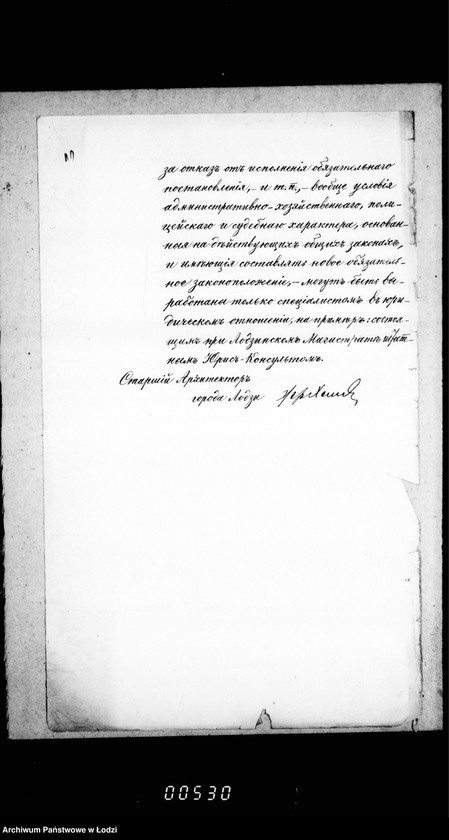 за отказъ отъ исполненія обязательнаго
постановленія, – и т. п., – вообще условія
административно-хозяйственнаго, поли-
цейскаго и судебнаго характера, основан-
ныя на дѣйствующихъ общихъ законахъ,
и имѣющія составлять новое обязатель-
ное законоположеніе, – могутъ быть вы-
работаны только спеціалистомъ въ юри-
дическомъ отношеніи, на примѣръ: состоя-
щимъ при Лодзинскомъ Магистратѣ штат-
нымъ Юрис-Консультомъ.
Старшій Архитекторъ
города Лодзи
00530
Archiwum Państwowe w Łodzi